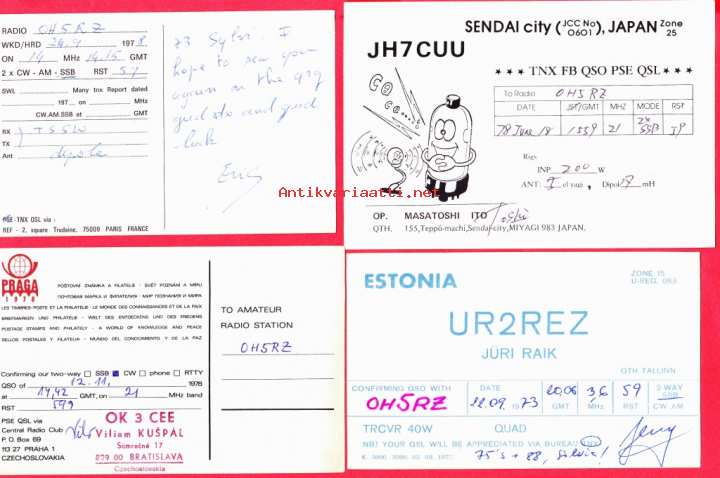 RADIO OH5RZ
WKD/HRD 24.9 1978
ON 14 MHz 14.15 GMT
2 x CW - AM - SSB RST 57
SWL Many tnx Report dated
197 on MHz
CW.AM.SSB at GMT
RX TS520
TX
Ant dipole
PSE TNX QSL via :
REF - 2, square Trudaine, 75009 PARIS FRANCE
73 Sylvi. I
hope to see you
again on the
good dx and good
luck
SENDAI city (JCC No 0601), JAPAN Zone 25
JH7CUU
★ ★ ★ TNX FB QSO PSE QSL ★ ★ ★
To Radio OH5RZ
DATE JST/GMT MHZ MODE RST
78 June 18 1559 21 2x SSB 59
Rigs
INP 200 W
ANT: el yagi, Dipol mH
CQ
CQ
OP. MASATOSHI ITO
QTH. 155, Teppō-machi, Sendai-city, MIYAGI 983 JAPAN.
Antikvariaatti.net
PRAGA
1978
POŠTOVNÍ ZNÁMKA A FILATELIE - SVĚT POZNÁNÍ A MÍRU
ПОЧТОВАЯ МАРКА И ФИЛАТЕЛИЯ - МИР ПОЗНАНИЯ И МИРА
LES TIMBRES-POSTE ET LA PHILATELIE - LE MONDE DES CONNAISSANCES ET DE LA PAIX
BRIEFMARKEN UND PHILATELIE - WELT DES ENTDECKENS UND DES FRIEDENS
POSTAGE STAMPS AND PHILATELY - A WORLD OF KNOWLEDGE AND PEACE
SELLOS POSTALES Y FILATELIA - MUNDO DEL CONOCIMIENTO Y DE LA PAZ
TO AMATEUR
RADIO STATION
OH5RZ
Confirming our two-way SSB CW phone RTTY
QSO of 12.11, 1978
at 14,42 GMT, on 21 MHz band
RST 599
PSE QSL via
Central Radio Club
P. O. Box 69
113 27 PRAHA 1
CZECHOSLOVAKIA
OK 3 CEE
Viliam KUŠPÁL
Súmračná 17
829 00 BRATISLAVA
Czechoslovakia
ESTONIA
ZONE 15
U-REG. 083
UR2REZ
JÜRI RAIK
QTH TALLINN
CONFIRMING QSO WITH DATE GMT MHz RST 2-WAY
OH5RZ 22.09.1973 20.06 3,6 59 SSB
CW AM
TRCVR 40W QUAD
NB! YOUR QSL WILL BE APPRECIATED VIA BUREAU
73's + 88, Silvia!